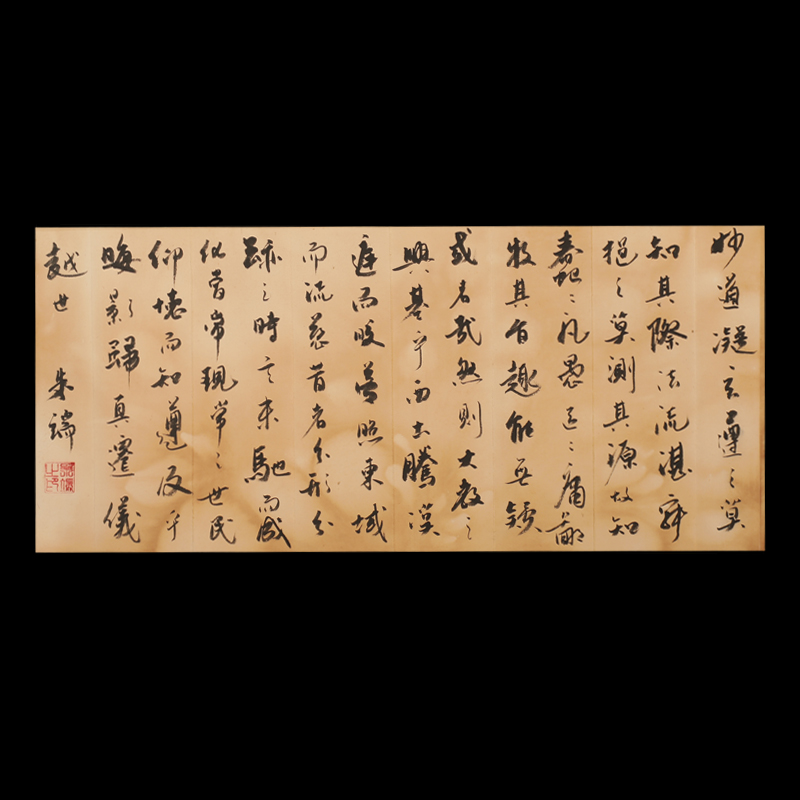 妙道凝玄遵之莫
知其際法流湛寂
挹之莫測其源故知
蠢々凡愚區々庸鄙
投其旨趣能無疑
或者哉然則大教之
興基乎西土騰漢
庭而皎夢照東域
而流慈昔者分形分
跡之時言未馳而成
化當常現常之世民
仰德而知遵及乎
晦影歸真遷儀
越世 朱瑞